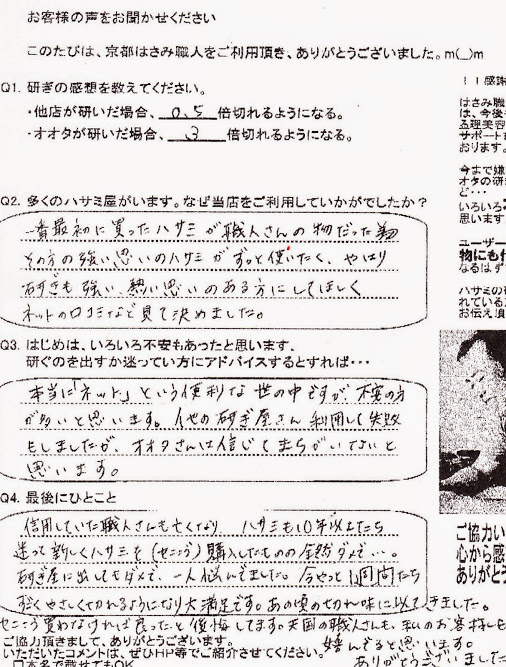 お客様の声をお聞かせください
このたびは、京都はさみ職人をご利用頂き、ありがとうございました。m(_)m
Q1. 研ぎの感想を教えてください。
・他店が研いだ場合、 0.5 倍切れるようになる。
・オオタが研いだ場合、 3 倍切れるようになる。
Q2. 多くのハサミ屋がいます。なぜ当店をご利用していかがでしたか？
一番最初に買ったハサミが職人さんの物だった為
その方の強い思いのハサミがずっと使いたく、やはり
研ぎも強い、熱い思いのある方にしてほしく
ネットの口コミなど見て決めました。
Q3. はじめは、いろいろ不安もあったと思います、
研ぐのを出すか迷ってい方にアドバイスするとすれば・・・
本当に「ネット」という便利な世の中ですが、不安の方
が多いと思います。他の研ぎ屋さん利用して失敗
もしましたが、オオタさんは信じてまちがいでないと
思います。
Q4. 最後にひとこと
信用していた職人さんも亡くなり、ハサミも10年以上たち
迷って新しくハサミを(せニング)購入したものの全然ダメで…。
研ぎ屋に出してもダメで、一人悩んでました。今やっと1週間たち
軽くやさしく切れるようになり大満足です。あの頃の切れ味に似てきました。
せニング買わなければ良かったと後悔してます。天国の職人さんも、私のお客様も
ご協力頂きまして、ありがとうございます。
嬉んでると思います。
いただいたコメントは、ぜひHP等でご紹介させてください。
ありがとうございました
日本名で載せてもOK
！！感謝
はさみ職
は、今後
る理美容
サポート
おります。
今まで嫌
オタの研
ど・・・
いろいろ
思います
ユーザー
物にも
なるはず
ハサミの
れている
お伝え頂
ご協力い
心から感
ありがと